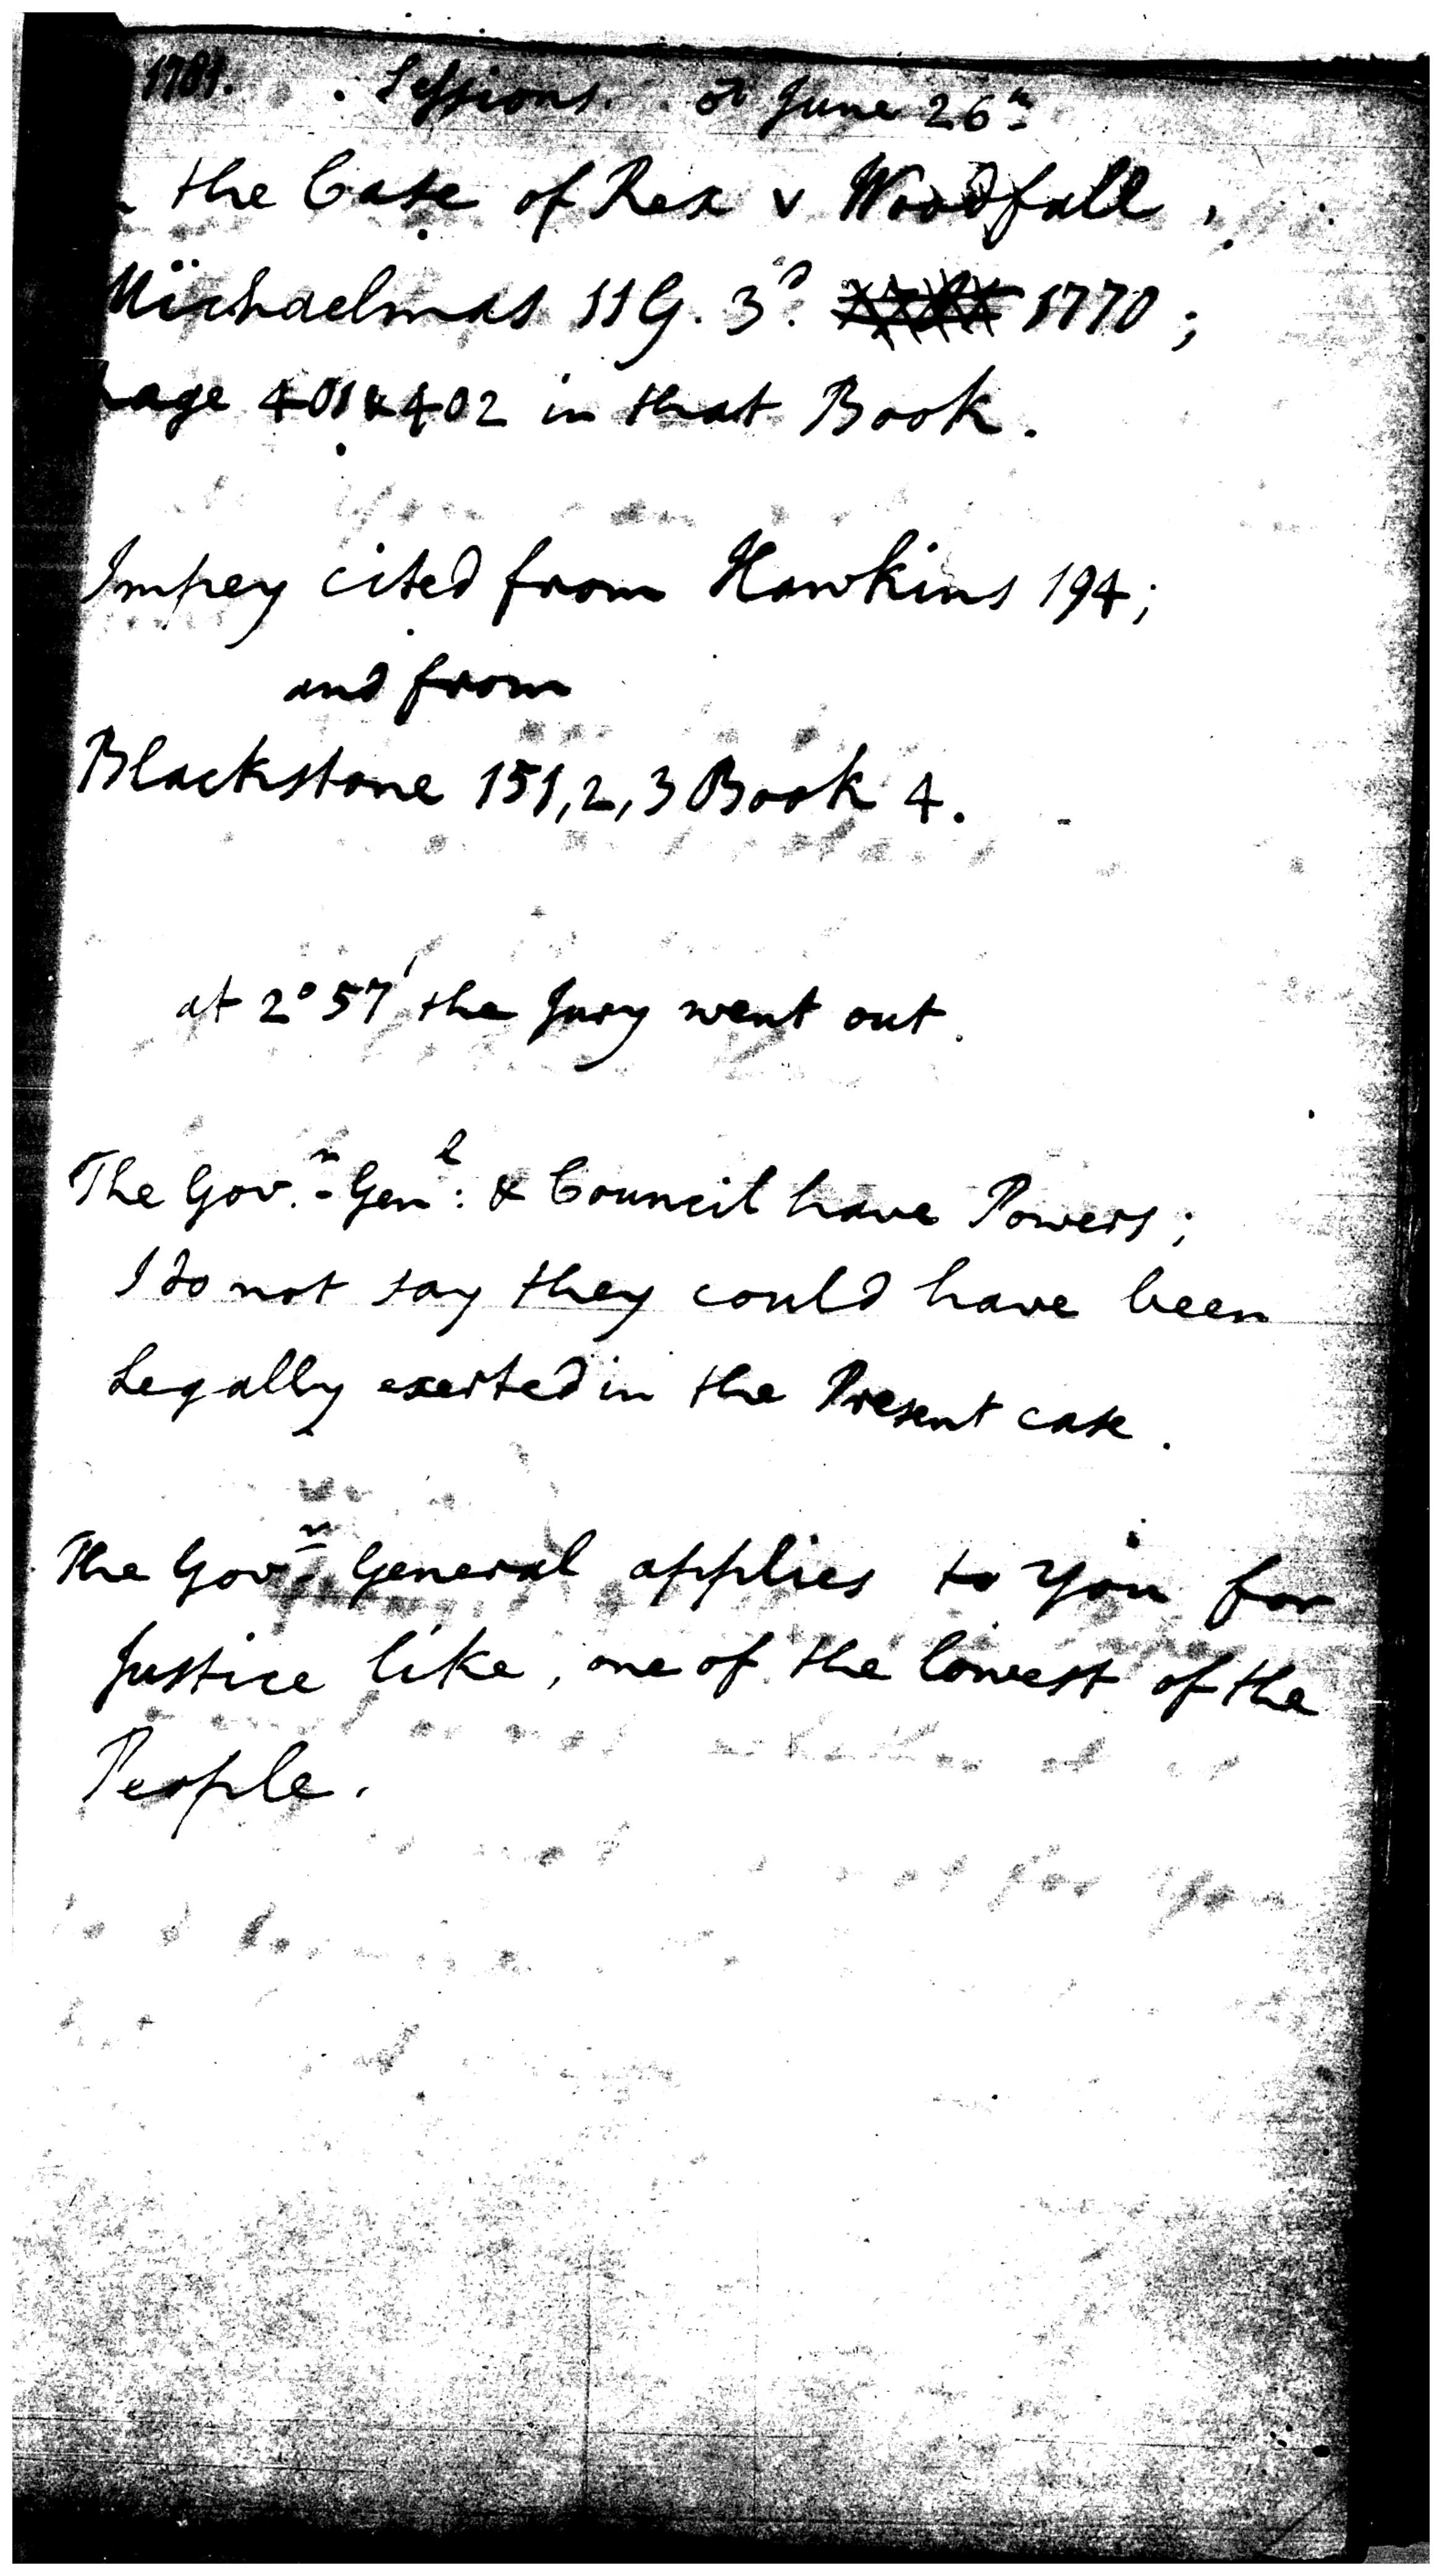 1781. Sessions. ♂ June 26th
the Case of Rex v Woodfall,
Michaelmas 11 G. 3d. 1770;
page 401 & 402 in that Book.
Impey cited from Hawkins 194;
and from
Blackstone 151, 2, 3 Book 4.
at 2° 57' the Jury went out.
The Govr.-Genl: & Council have Powers;
I do not say they could have been
Legally exerted in the Present case.
The Govr. General applies to You for
Justice like, one of the lowest of the
People.